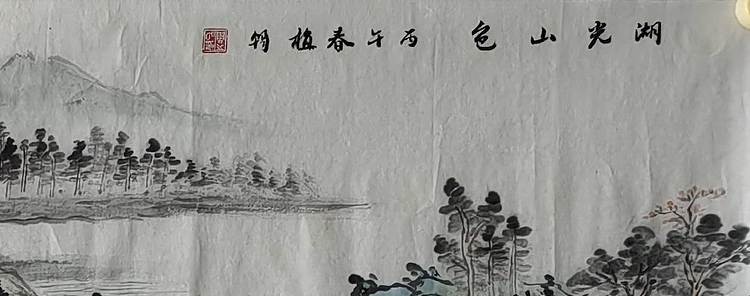 湖光山色 丙午春梅